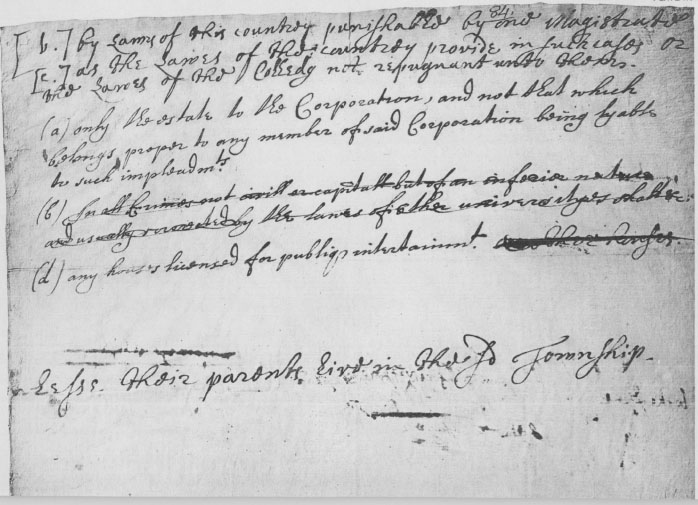 84.
[b.] by Lawes of this countrey punishable by one Magistrate
[c.] as the Lawes of the countrey provide in such cases or
the Lawes of the Colledg not repugnant unto them.
(a) only the estate to the Corporation, and not that which
belongs proper to any member of said Corporation being lyable
to such impleadmts
(b) In all Crimes not capitall but of an inferior nature
and usually by the lawes of other universityes
(d) any houses licensed for publiq intertainmt. or other houses.
Lesse their parents live in the sd Township.